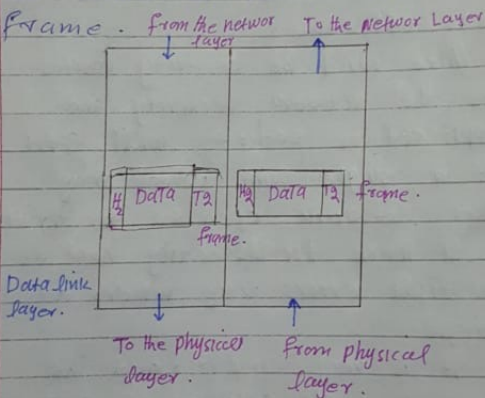 frame. from the networ To the Networ Layer
layer
H2 Data T2 H2 Data T2 frame.
frame.
Data link
layer.
To the physical from physical
layer. layer.